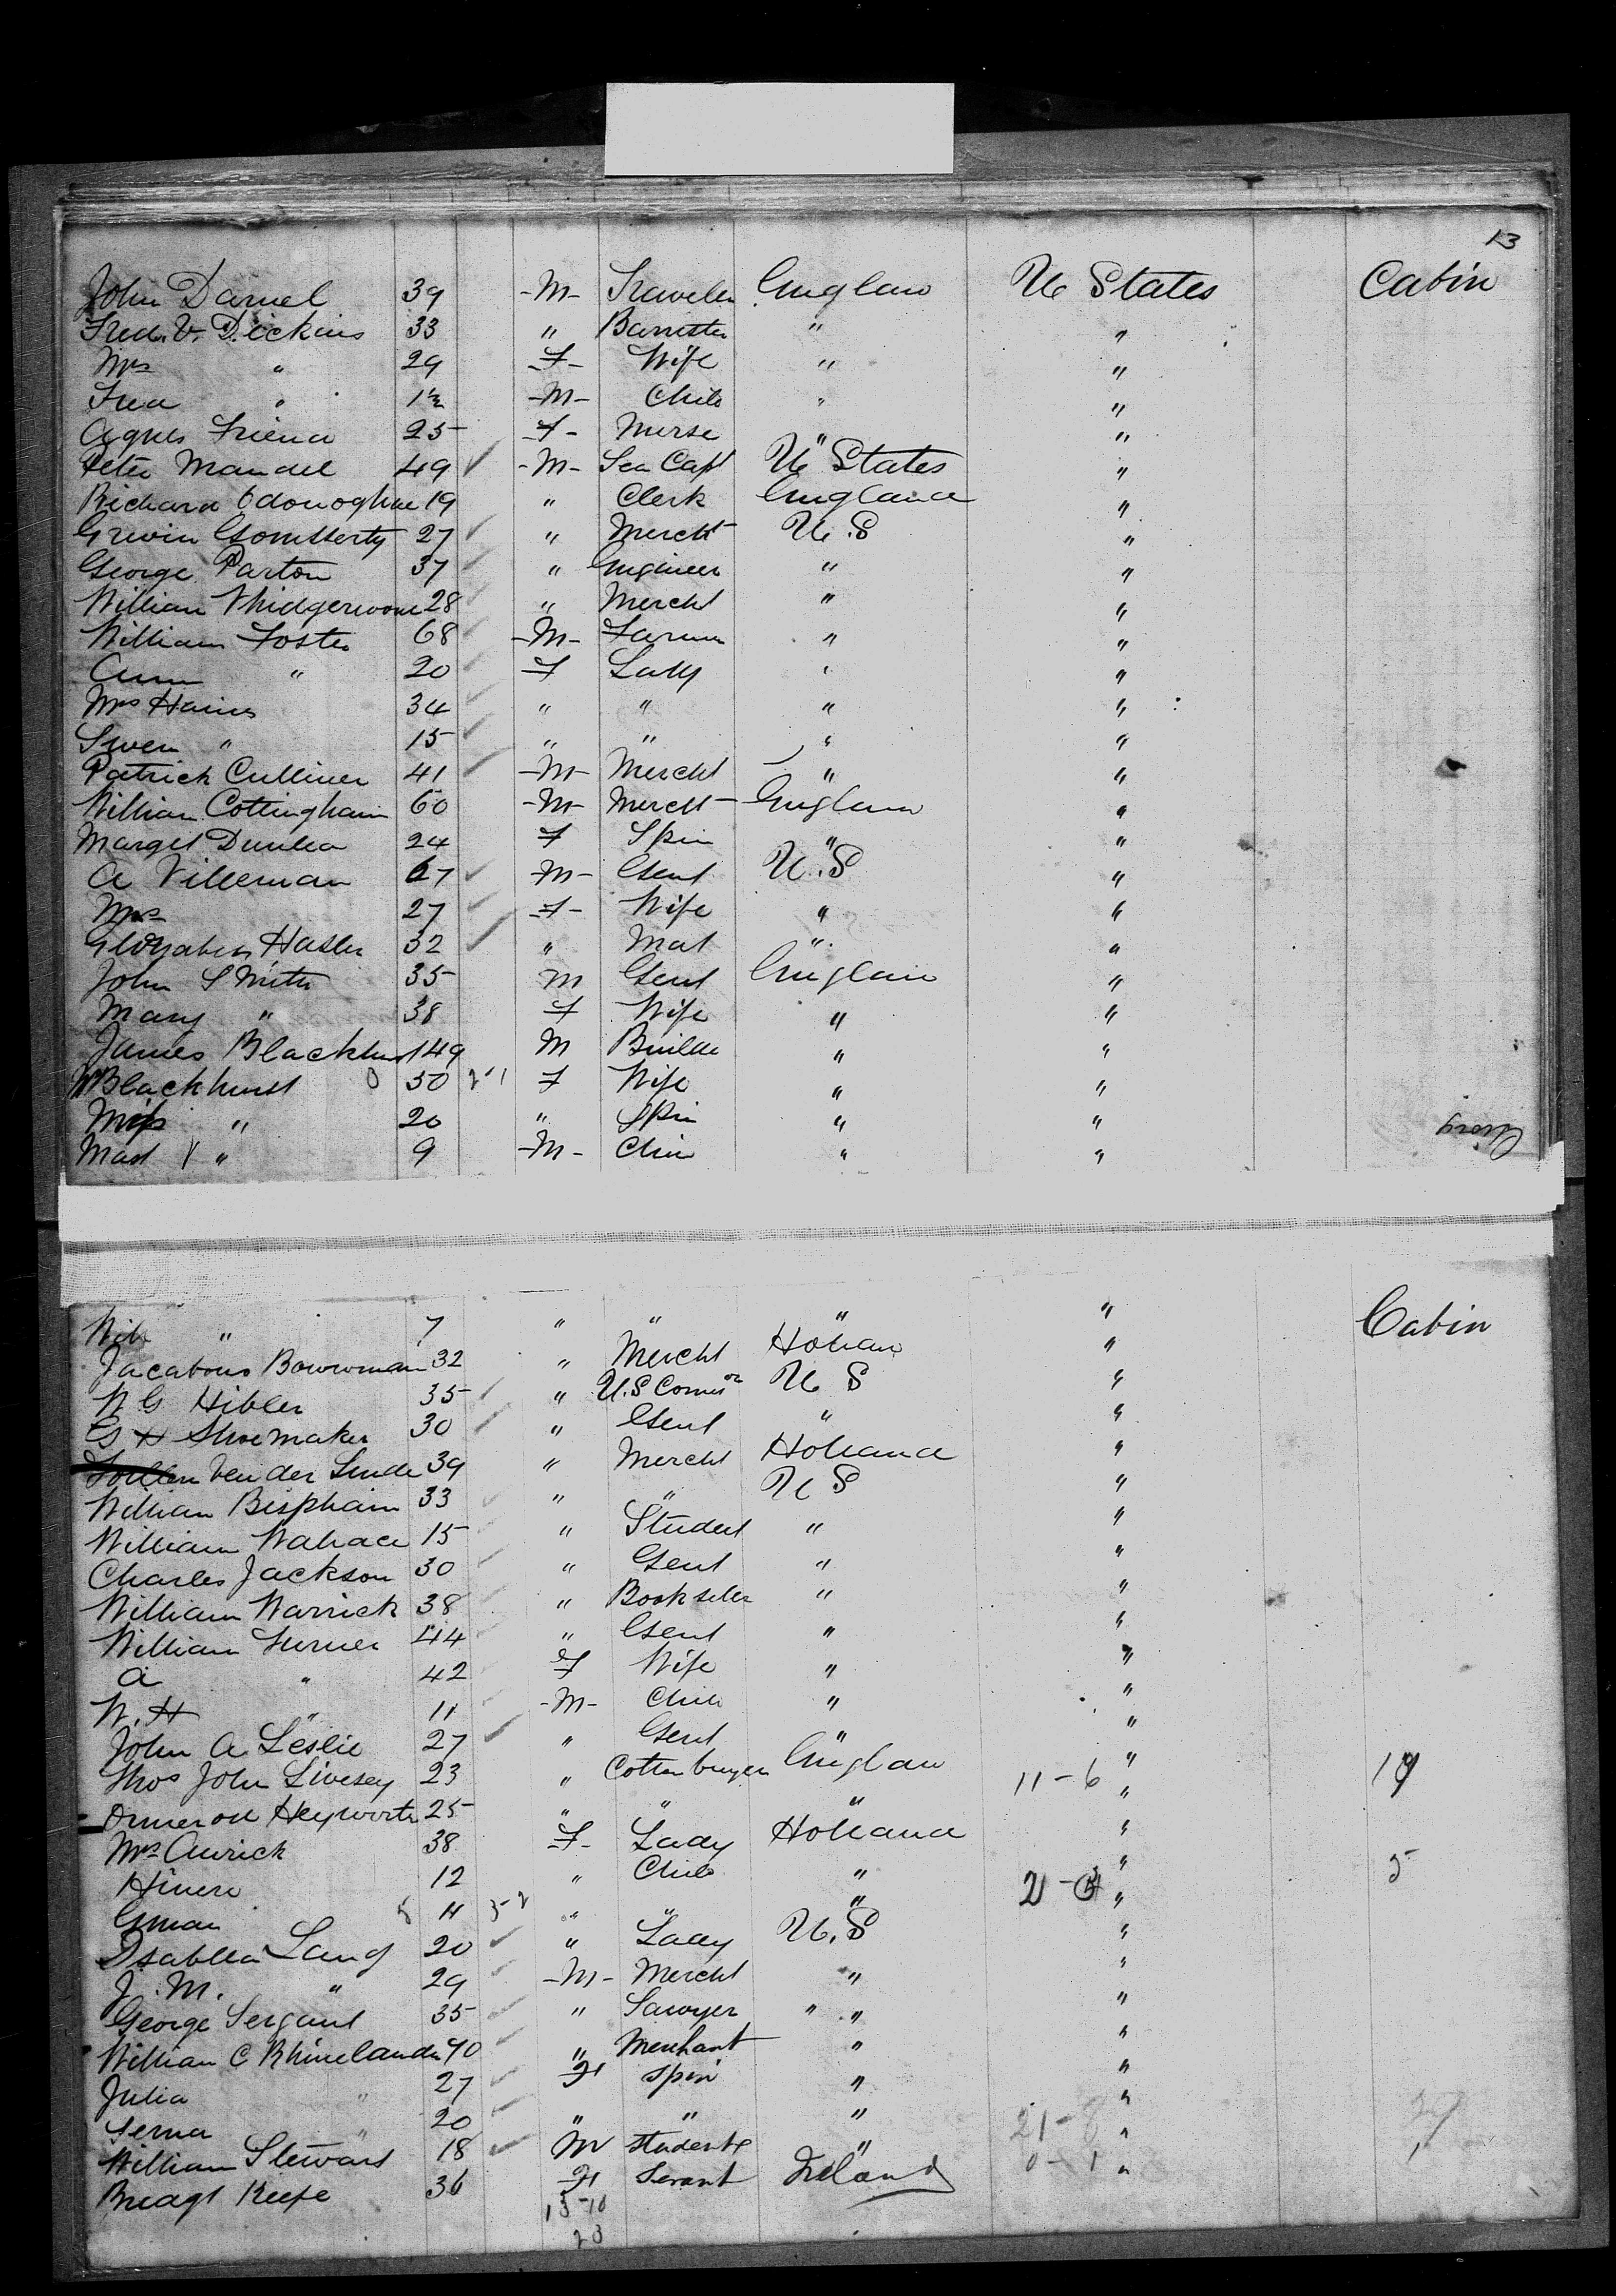 13
John Daniel 39 -M- Traveler England U States Cabin
Fred. V. Dickins 33 " Barrister " "
Mrs " 29 F- Wife " "
Fred " 1½ -M- Child " "
Agnes Friend 25 F- Nurse " "
Peter Mandel 49 ✓ -M- Sea Capt U States "
Richard Odonoghue 19 " Clerk England "
27 ✓ " Mercht U.S "
George Parton 37 ✓ " Engineer " "
William 28 ✓ " Mercht " "
William Foster 68 ✓ -M- Farmer " "
Ann " 20 ✓ F Lady " "
Mrs Haines 34 ✓ " " " "
" 15 ✓ " " " "
Patrick Culliner 41 ✓ -M- Mercht " "
William Cottingham 60 -M- Mercht England "
Margt Dunlea 24 F Spin " "
A Villeman 67 ✓ -M- Gent U.S "
Mrs 27 ✓ F- Wife " "
Hasler 32 ✓ " Mat " "
John Smith 35 M Gent England "
Mary " 38 F Wife " "
James Blackhurst 49 M Builder " "
Blackhurst 50 F Wife " "
Miss " 20 " Spin " "
Mast " 9 -M- Child " "
Will " 7 " " " " Cabin
Jacabous Bowwman 32 " Mercht Hollan "
W G Hibler 35 ✓ " U.S Comr U S "
G H Shoemaker 30 ✓ " Gent " "
Van der Linde 39 " Mercht Holland "
William Bispham 33 ✓ " " U S "
William Wallace 15 ✓ " Student " "
Charles Jackson 30 ✓ " Gent " "
William Warrick 38 ✓ " Bookseller " "
William Turner 44 ✓ " Gent " "
A " 42 ✓ F Wife " "
W. H " 11 ✓ -M- Child " "
John A Leslie 27 ✓ " Gent " "
Thos John Livesey 23 " Cotton buyer England " 11-6
Ormerod Heyworth 25 " " " "
Mrs Aurich 38 F- Lady Holland "
12 " Child " " 5
11 " " " "
Isabella Lang 20 ✓ " Lady U.S "
J. M. " 29 ✓ -M- Mercht " "
George Sergant 35 ✓ " Sawyer " "
William C Rhinelander 40 ✓ " Merchant " "
Julia " 27 ✓ F Spin " "
" 20 ✓ " " " "
William Stewart 18 ✓ M Students " " 21-8
36 F Servant Ireland " 0-1
15-10